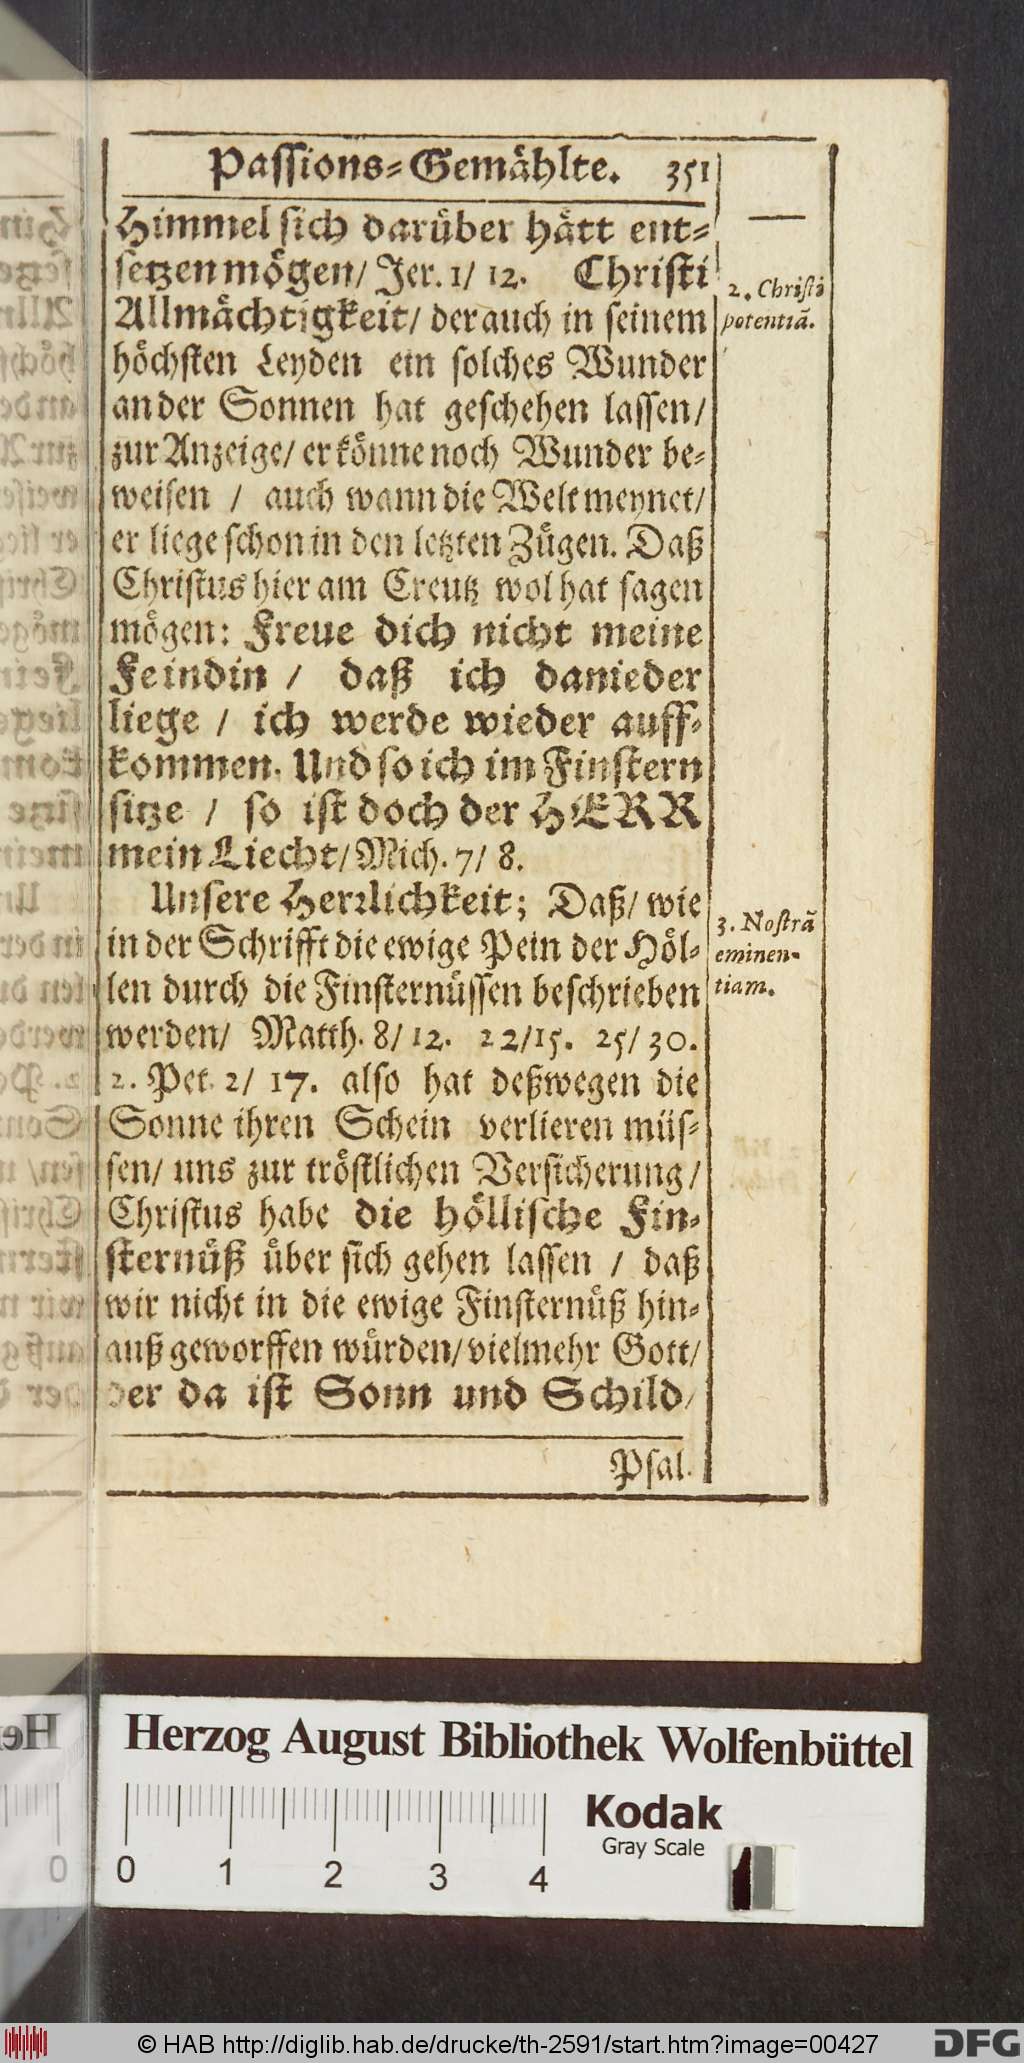 Passions-Gemählte. 351
Himmel sich darüber hätt ent-
setzen mögen/ Jer. 1/ 12. Christi
Allmächtigkeit/ der auch in seinem
höchsten Leyden ein solches Wunder
an der Sonnen hat geschehen lassen/
zur Anzeige/ er könne noch Wunder be-
weisen / auch wann die Welt meynet/
er liege schon in den letzten Zügen. Daß
Christus hier am Creutz wol hat sagen
mögen: Freue dich nicht meine
Feindin / daß ich danieder
liege / ich werde wieder auff-
kommen. Und so ich im Finstern
sitze / so ist doch der HERR
mein Liecht/ Mich. 7/ 8.
Unsere Herrlichkeit; Daß/ wie
in der Schrifft die ewige Pein der Höl-
len durch die Finsternüssen beschrieben
werden/ Matth. 8/ 12. 22/15. 25/ 30.
2. Pet. 2/ 17. also hat deßwegen die
Sonne ihren Schein verlieren müs-
sen/ uns zur tröstlichen Versicherung/
Christus habe die höllische Fin-
sternüß über sich gehen lassen / daß
wir nicht in die ewige Finsternüß hin-
auß geworffen würden/ vielmehr Gott/
der da ist Sonn und Schild/
Psal.
2. Christi
potentiã.
3. Nostrã
eminen-
tiam.
Herzog August Bibliothek Wolfenbüttel
Kodak
Gray Scale
0 1 2 3 4
© HAB http://diglib.hab.de/drucke/th-2591/start.htm?image=00427
DFG